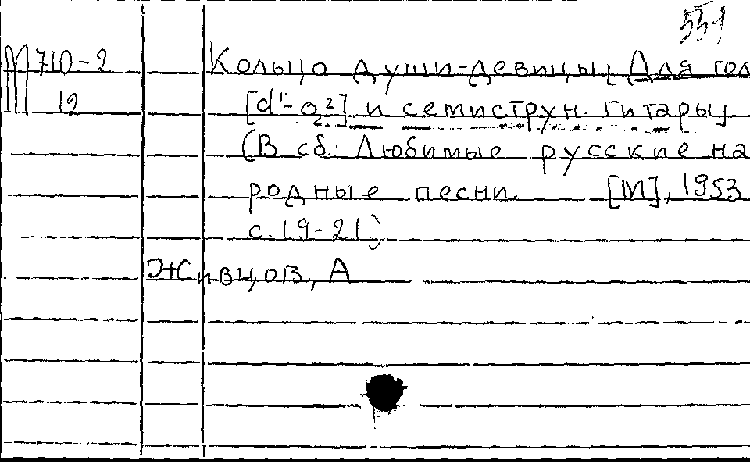 551
М 710-2 Кольцо души-девицы. Для гол
12 [d¹-g²] и семиструн. гитары
(В сб: Любимые русские на
родные песни. [М], 1953
с. 19-21)
Живцов, А